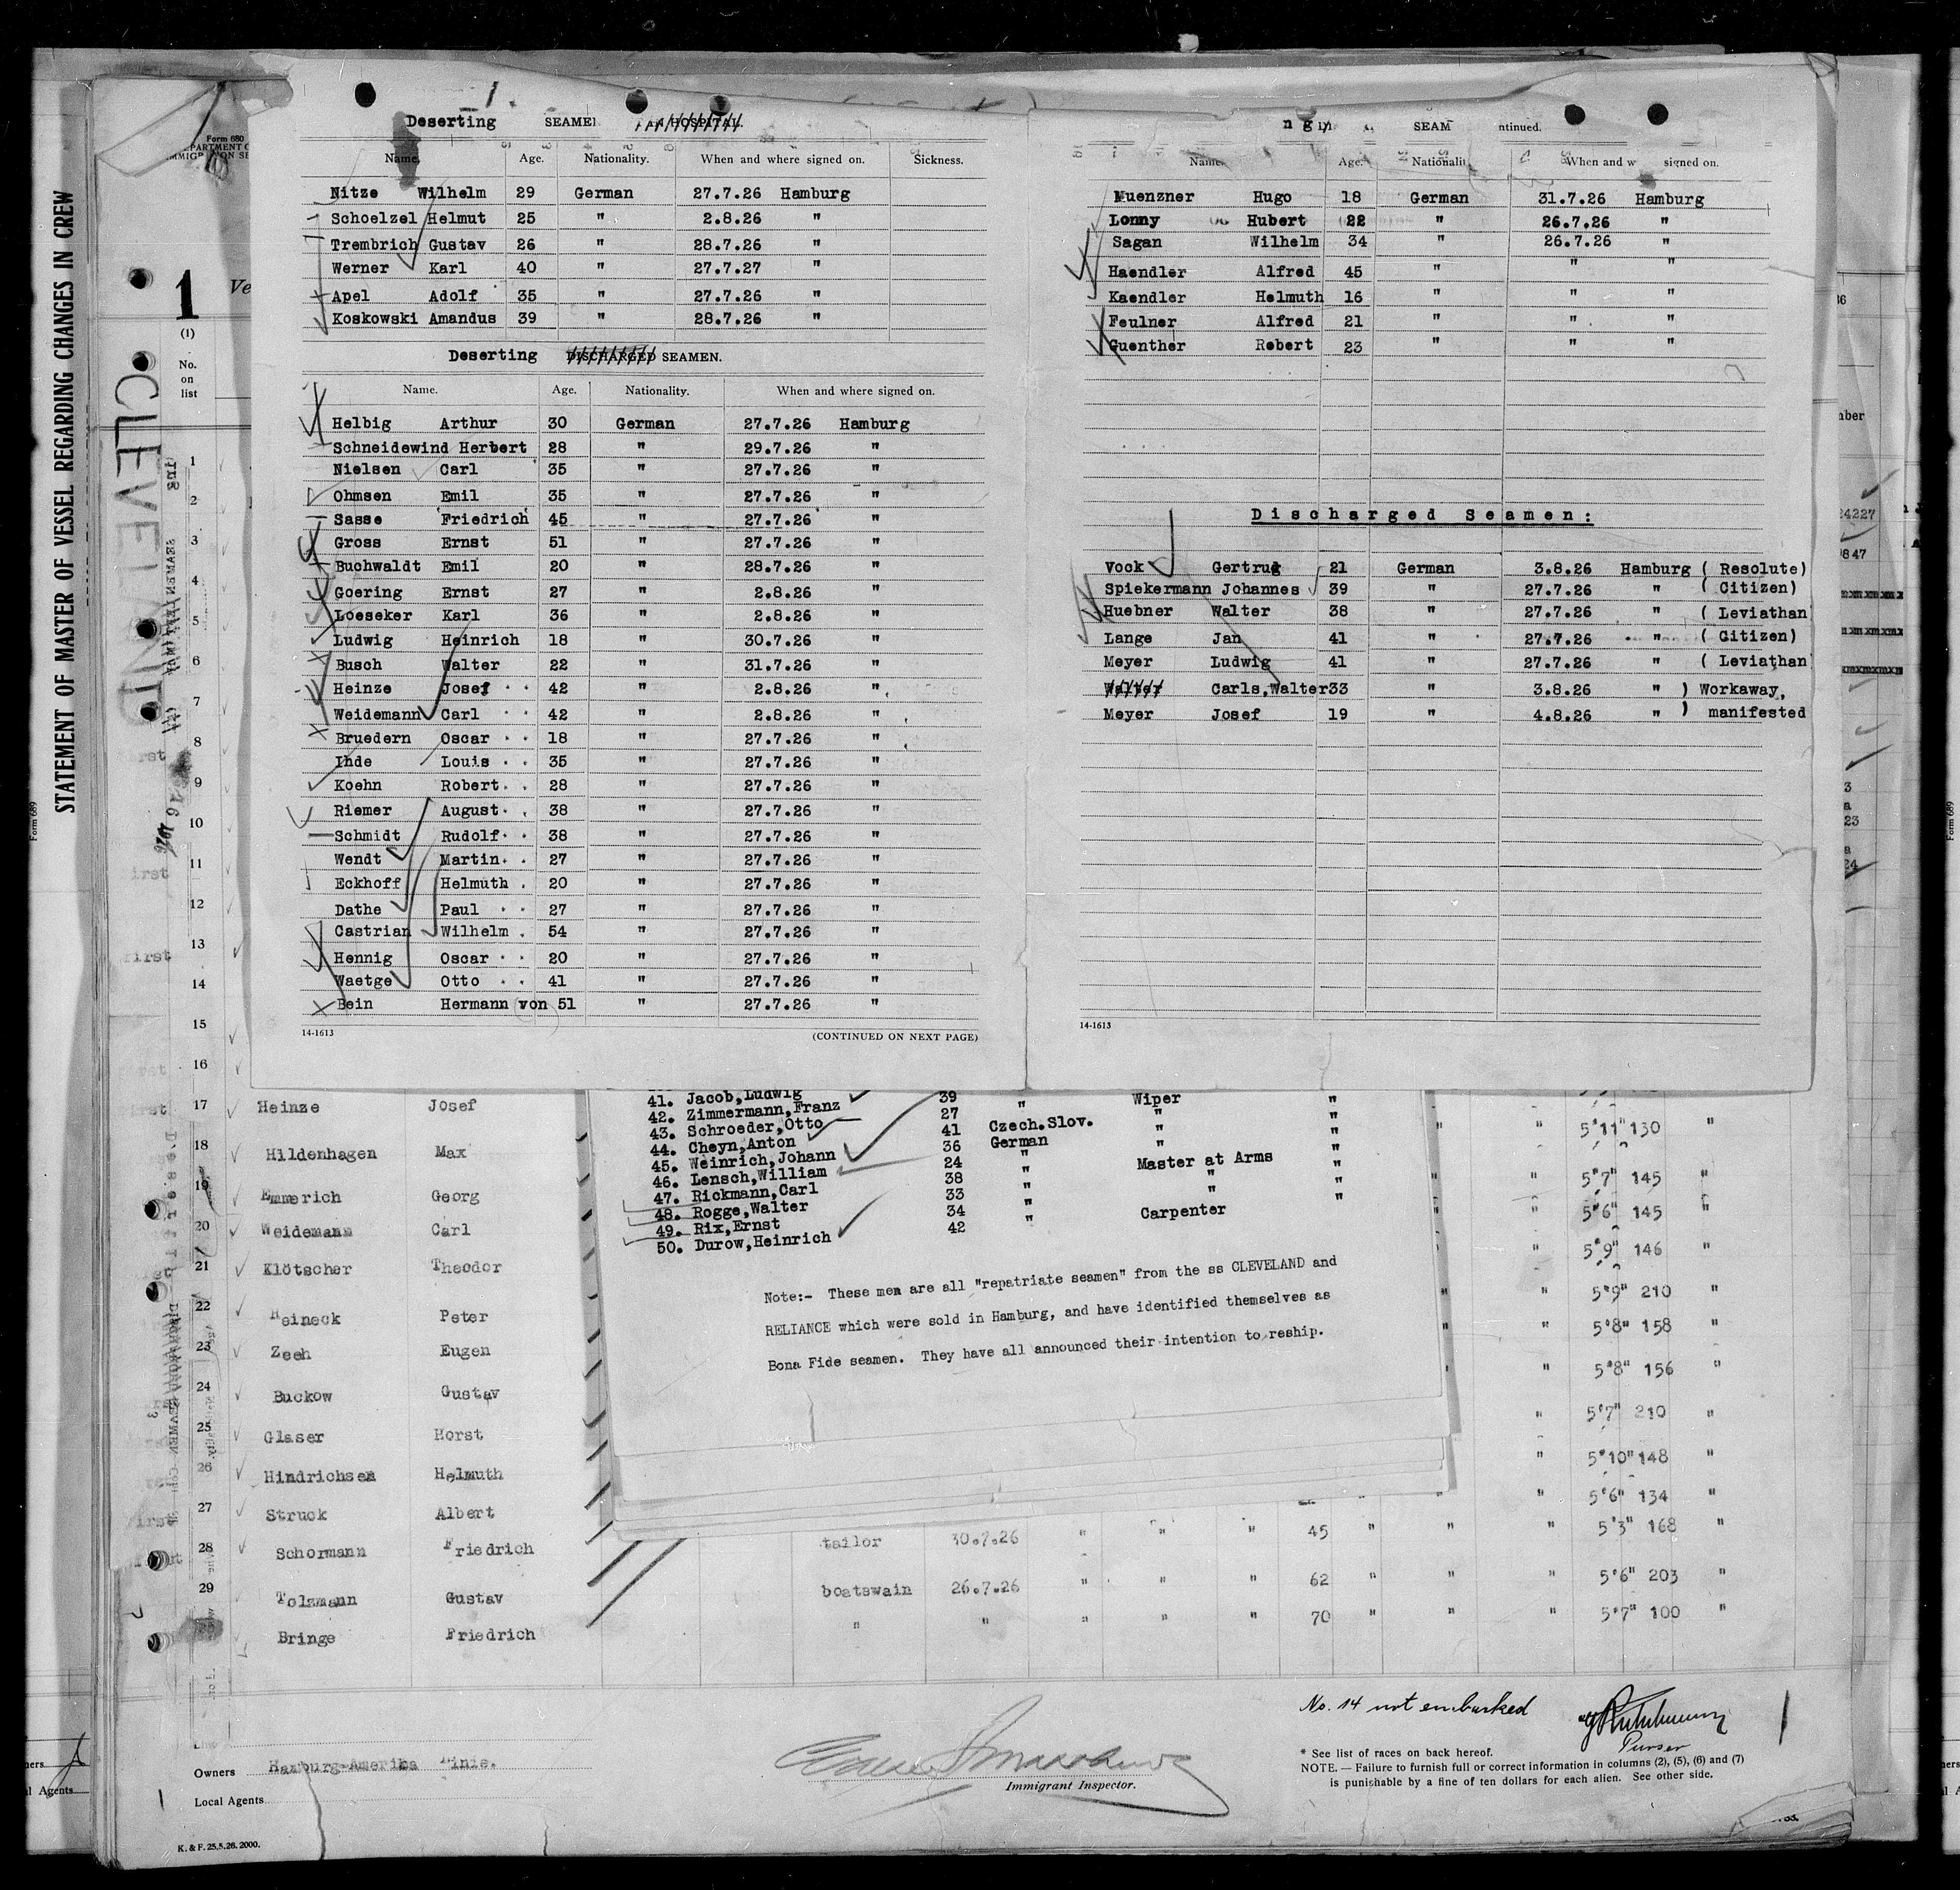 1.
Deserting SEAMEN HOSPITAL.
Name. Age. Nationality. When and where signed on. Sickness.
Nitze Wilhelm 29 German 27.7.26 Hamburg
Schoelzel Helmut 25 " 2.8.26 "
Trembrich Gustav 26 " 28.7.26 "
Werner Karl 40 " 27.7.27 "
Apel Adolf 35 " 27.7.26 "
Koskowski Amandus 39 " 28.7.26 "
Deserting DISCHARGED SEAMEN.
Name. Age. Nationality. When and where signed on.
Helbig Arthur 30 German 27.7.26 Hamburg
Schneidewind Herbert 28 " 29.7.26 "
Nielsen Carl 35 " 27.7.26 "
Ohmsen Emil 35 " 27.7.26 "
Sasse Friedrich 45 " 27.7.26 "
Gross Ernst 51 " 27.7.26 "
Buchwaldt Emil 20 " 28.7.26 "
Goering Ernst 27 " 2.8.26 "
Loeseker Karl 36 " 2.8.26 "
Ludwig Heinrich 18 " 30.7.26 "
Busch Walter 22 " 31.7.26 "
Heinze Josef 42 " 2.8.26 "
Weidemann Carl 42 " 2.8.26 "
Bruedern Oscar 18 " 27.7.26 "
Ihde Louis 35 " 27.7.26 "
Koehn Robert 28 " 27.7.26 "
Riemer August 38 " 27.7.26 "
Schmidt Rudolf 38 " 27.7.26 "
Wendt Martin 27 " 27.7.26 "
Eckhoff Helmuth 20 " 27.7.26 "
Dathe Paul 27 " 27.7.26 "
Castrian Wilhelm 54 " 27.7.26 "
Hennig Oscar 20 " 27.7.26 "
Waetge Otto 41 " 27.7.26 "
Bein Hermann von 51 " 27.7.26 "
14-1613 (CONTINUED ON NEXT PAGE)
SEAM ntinued.
Name. Age. Nationalit When and w signed on.
Muenzner Hugo 18 German 31.7.26 Hamburg
Lonny Hubert 22 " 26.7.26 "
Sagan Wilhelm 34 " 26.7.26 "
Haendler Alfred 45 " " "
Kaendler Helmuth 16 " " "
Feulner Alfred 21 " " "
Guenther Robert 23 " " "
Discharged Seamen:
Vock Gertrug 21 German 3.8.26 Hamburg ( Resolute)
Spiekermann Johannes 39 " 27.7.26 " ( Citizen)
Huebner Walter 38 " 27.7.26 " ( Leviathan
Lange Jan 41 " 27.7.26 " ( Citizen)
Meyer Ludwig 41 " 27.7.26 " ( Leviathan
Walter Carls,Walter 33 " 3.8.26 " ) Workaway,
Meyer Josef 19 " 4.8.26 " ) manifested
14-1613
STATEMENT OF MASTER OF VESSEL REGARDING CHANGES IN CREW
Form 689
CLEVELAND
Form 680
1 Ve
(1)
No.
on
list
1
2
3
4
5
6
7
8
9
10
11
12
13
14
15
16
41. Jacob,Ludwig 39 " Wiper "
42. Zimmermann,Franz 27 " "
43. Schroeder,Otto 41 Czech.Slov. " "
44. Cheyn,Anton 36 German " "
45. Weinrich,Johann 24 " Master at Arms "
46. Lensch,William 38 " " "
47. Rickmann,Carl 33 " " "
48. Rogge,Walter 34 " Carpenter
49. Rix,Ernst 42 "
50. Durow,Heinrich
Note:- These men are all "repatriate seamen" from the ss CLEVELAND and
RELIANCE which were sold in Hamburg, and have identified themselves as
Bona Fide seamen. They have all announced their intention to reship.
17 Heinze Josef " " 5'11" 130 "
18 Hildenhagen Max " " 5'7" 145 "
19 Emmerich Georg " " 5'6" 145 "
20 Weidemann Carl " " 5'9" 146 "
21 Klötscher Theodor " " 5'9" 210 "
22 Heineck Peter " " 5'8" 158 "
23 Zeeh Eugen " " 5'8" 156 "
24 Buckow Gustav " " 5'7" 210 "
25 Glaser Horst " " 5'10" 148 "
26 Hindrichsen Helmuth " " 5'6" 134 "
27 Struck Albert
28 Schormann Friedrich tailor 30.7.26 " " " 45 " " " 5'3" 168 "
29 Tolzmann Gustav boatswain 26.7.26 " " " 62 " " " 5'6" 203 "
Bringe Friedrich " " " " " 70 " " " 5'7" 100 "
No. 14 not embarked
Purser
Owners Hamburg-Amerika Linie.
Local Agents
Immigrant Inspector.
* See list of races on back hereof.
NOTE. — Failure to furnish full or correct information in columns (2), (5), (6) and (7)
is punishable by a fine of ten dollars for each alien. See other side.
K. & F. 25.5.26. 2000.